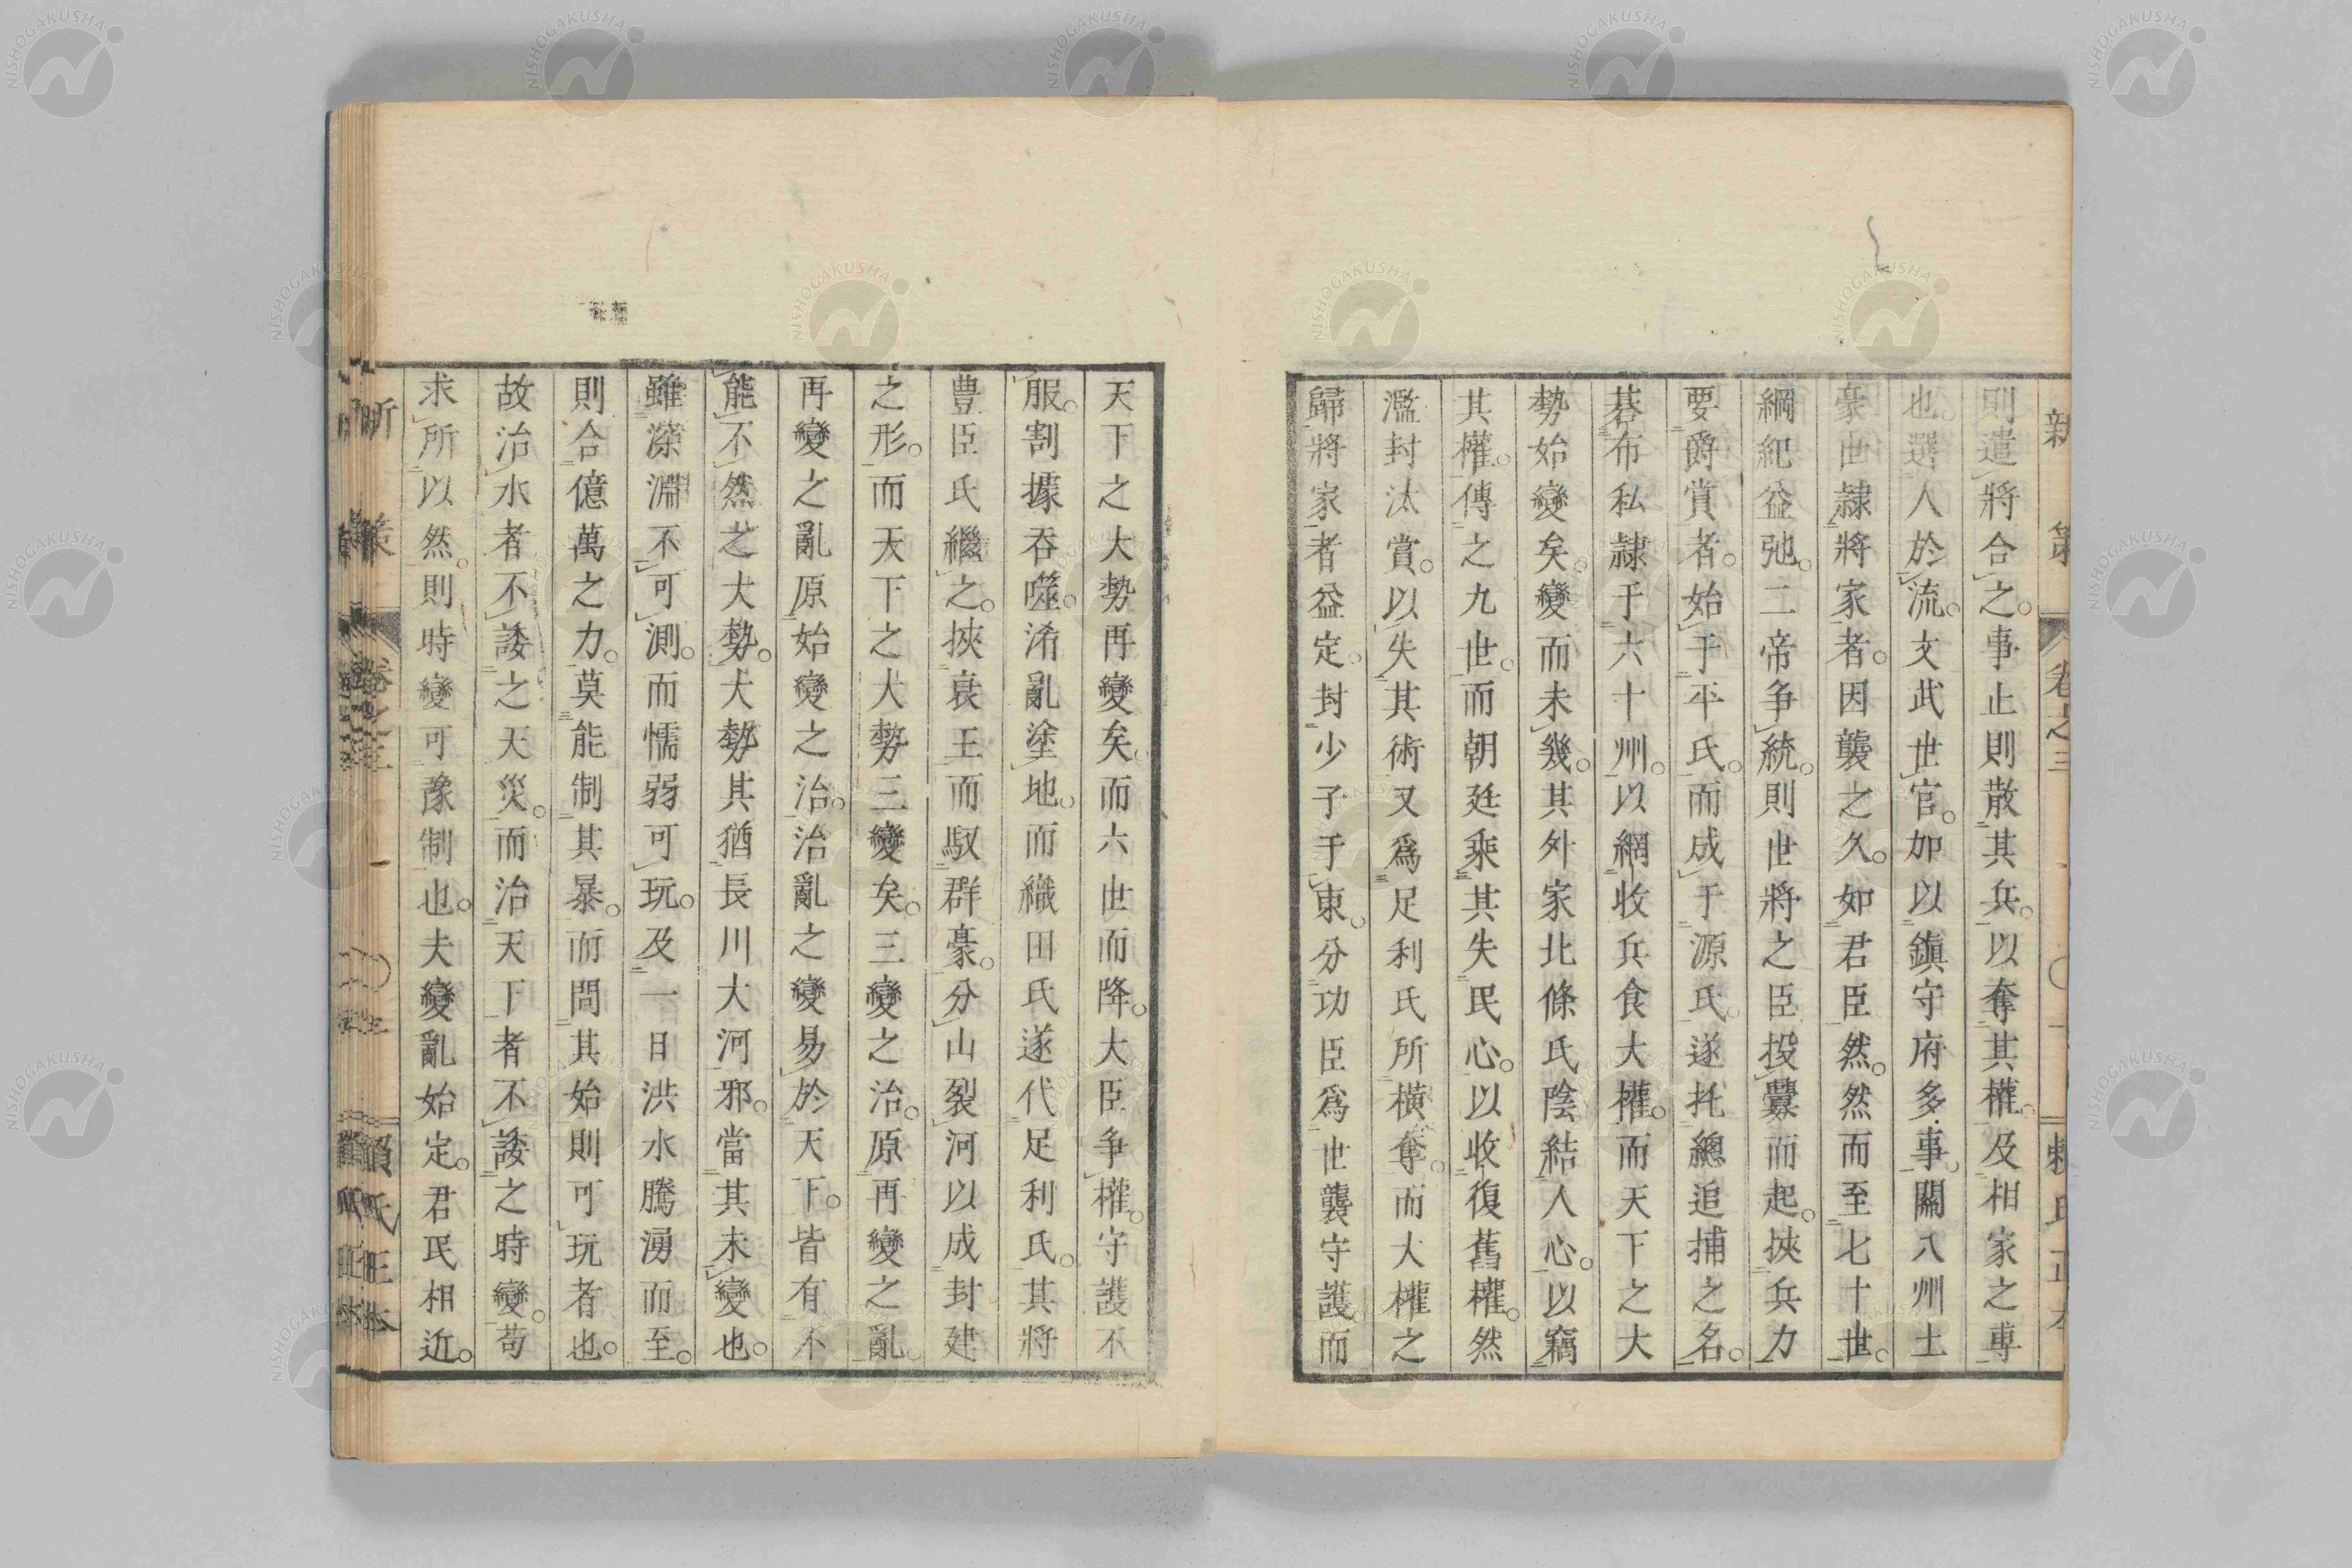 則遣將合之。事止則散其兵。以奪其權。及相家之專
也。選人於流。文武世官。加以鎮守府多事。關八州士
豪世隷將家者。因襲之久。如君臣然。然而至七十世。
綱紀益弛。二帝争統。則世將之臣投釁而起。挾兵力
要爵賞者。始于平氏。而成于源氏。遂托總追捕之名。
碁布私隷于六十州。以網收兵食大權。而天下之大
勢始變矣。變而未幾。其外家北條氏陰結人心。以竊
其權。傳之九世。而朝廷乘其失民心。以收復舊權。然
濫封汰賞。以失其術。又爲足利氏所横奪。而大權之
歸將家者益定。封少子于東。分功臣爲世襲守護。而
天下之大勢再變矣。而六世而降。大臣争權。守護不
服。割據吞噬。淆亂塗地。而織田氏遂代足利氏。其將
豊臣氏繼之。挾衰王而馭群豪。分山裂河以成封建
之形。而天下之大勢三變矣。三變之治。原再變之亂。
再變之亂原始變之治。治亂之變易於天下。皆有不
能不然之大勢。大勢其猶長川大河邪。當其未變也。
雖深淵不可測。而懦弱可玩。及一日洪水騰湧而至。
則合億萬之力。莫能制其暴。而問其始則可玩者也。
故治水者不諉之天災。而治天下者不諉之時變。苟
求所以然。則時變可豫制也。夫變亂始定。君民相近。
新策 卷之三
NISHOGAKUSHA